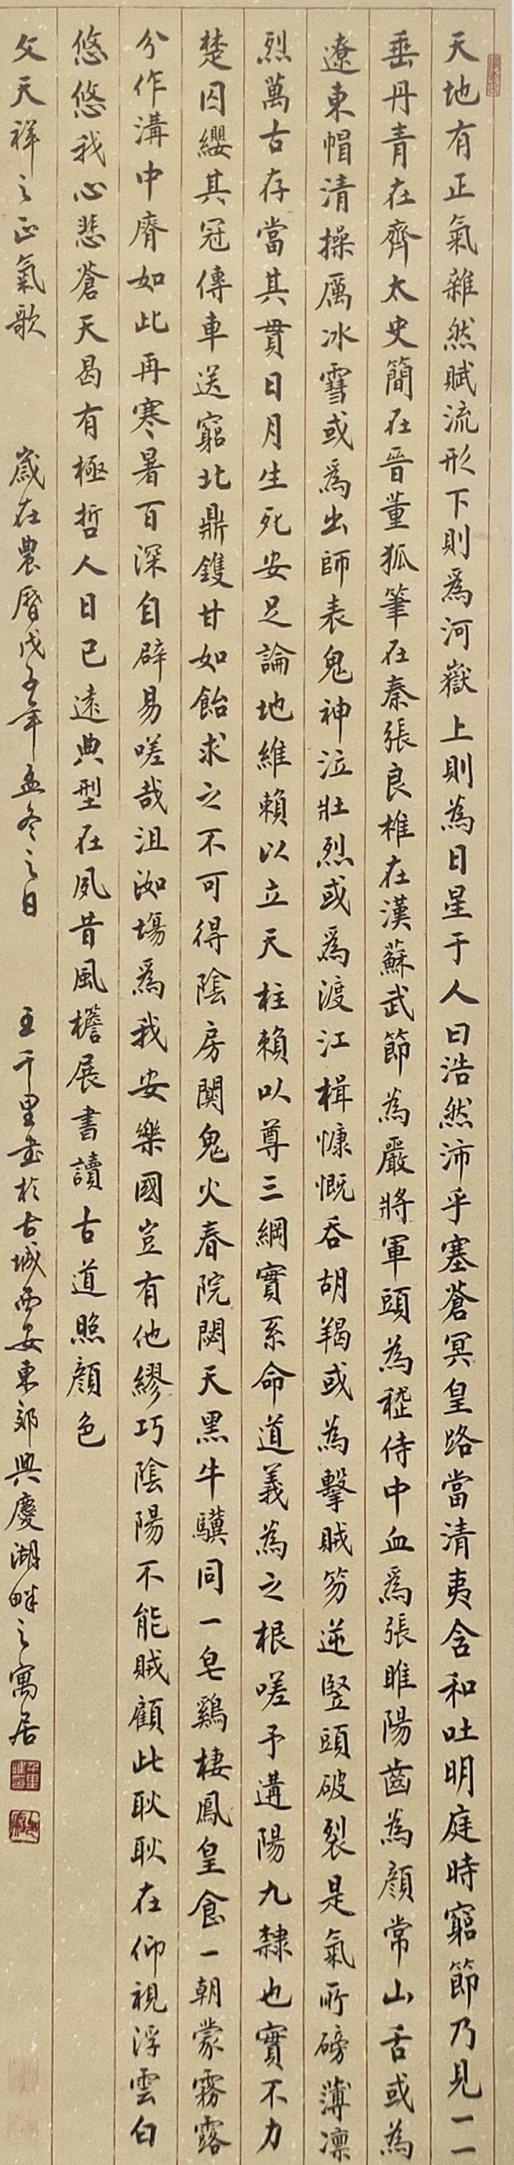 天地有正氣雜然賦流形下則爲河嶽上則為日星于人曰浩然沛乎塞蒼冥皇路當清夷含和吐明庭時窮節乃見一一
垂丹青在齊太史簡在晉董狐筆在秦張良椎在漢蘇武節為嚴將軍頭為嵇侍中血爲張睢陽齒為顏常山舌或為
遼東帽清操厲冰雪或爲出師表鬼神泣壯烈或爲渡江楫慷慨吞胡羯或為擊賊笏逆豎頭破裂是氣所磅薄凜
烈萬古存當其貫日月生死安足論地維賴以立天柱賴以尊三綱實系命道義為之根嗟予遘陽九隸也實不力
楚囚纓其冠傳車送窮北鼎鑊甘如飴求之不可得陰房闃鬼火春院閟天黑牛驥同一皂鷄棲鳳皇食一朝蒙霧露
分作溝中瘠如此再寒暑百沴自辟易嗟哉沮洳塲爲我安樂國豈有他繆巧陰陽不能賊顧此耿耿在仰視浮雲白
悠悠我心悲蒼天曷有極哲人日已遠典型在夙昔風檐展書讀古道照顏色
文天祥之正氣歌 歲在農曆戊子年孟冬之日 王千里書於古城西安東郊興慶湖畔之寓居